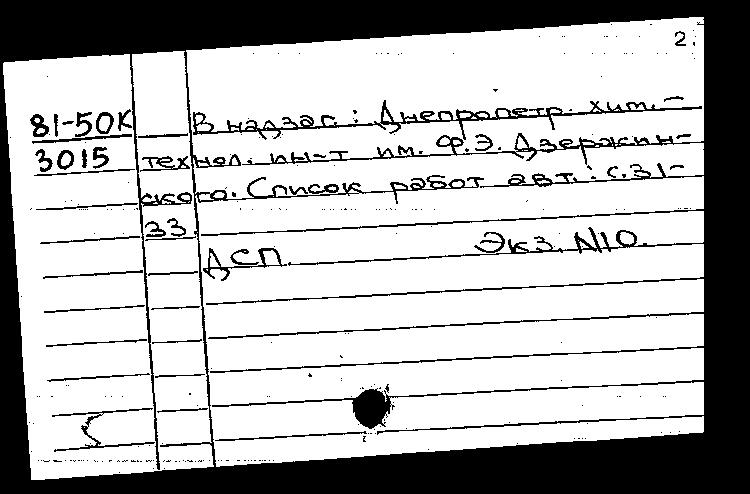 2.
81-50К
3015
В надзаг.: Днепропетр. хим.-
технол. ин-т им. Ф.Э. Дзержин-
ского. Список работ авт.: с.31-
33.
ДСП. Экз. №10.